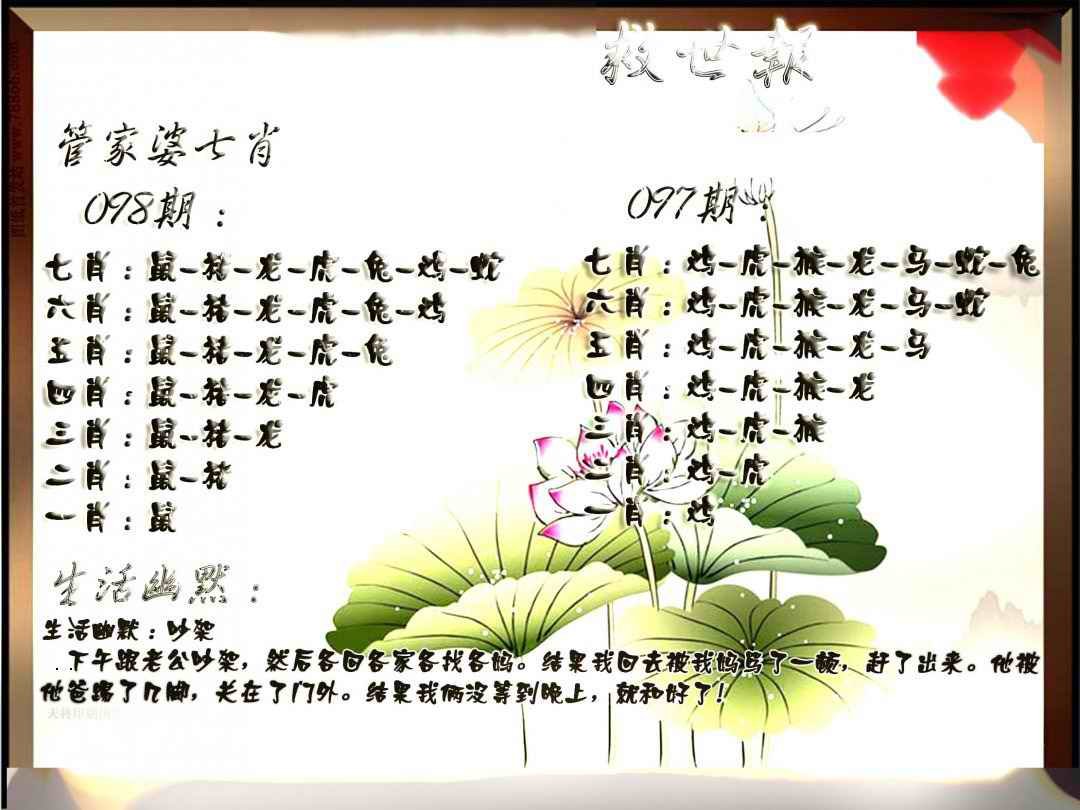 救世報
管家婆七肖
098期：
七肖：鼠-猪-龙-虎-兔-鸡-蛇
六肖：鼠-猪-龙-虎-兔-鸡
五肖：鼠-猪-龙-虎-兔
四肖：鼠-猪-龙-虎
三肖：鼠-猪-龙
二肖：鼠-猪
一肖：鼠
097期：
七肖：鸡-虎-猴-龙-马-蛇-兔
六肖：鸡-虎-猴-龙-马-蛇
五肖：鸡-虎-猴-龙-马
四肖：鸡-虎-猴-龙
三肖：鸡-虎-猴
二肖：鸡-虎
一肖：鸡
生活幽默：
生活幽默：吵架
．下午跟老公吵架，然后各回各家各找各妈。结果我回去被我妈骂了一顿，赶了出来。他被
他爸踢了几脚，关在了门外。结果我俩没等到晚上，就和好了！